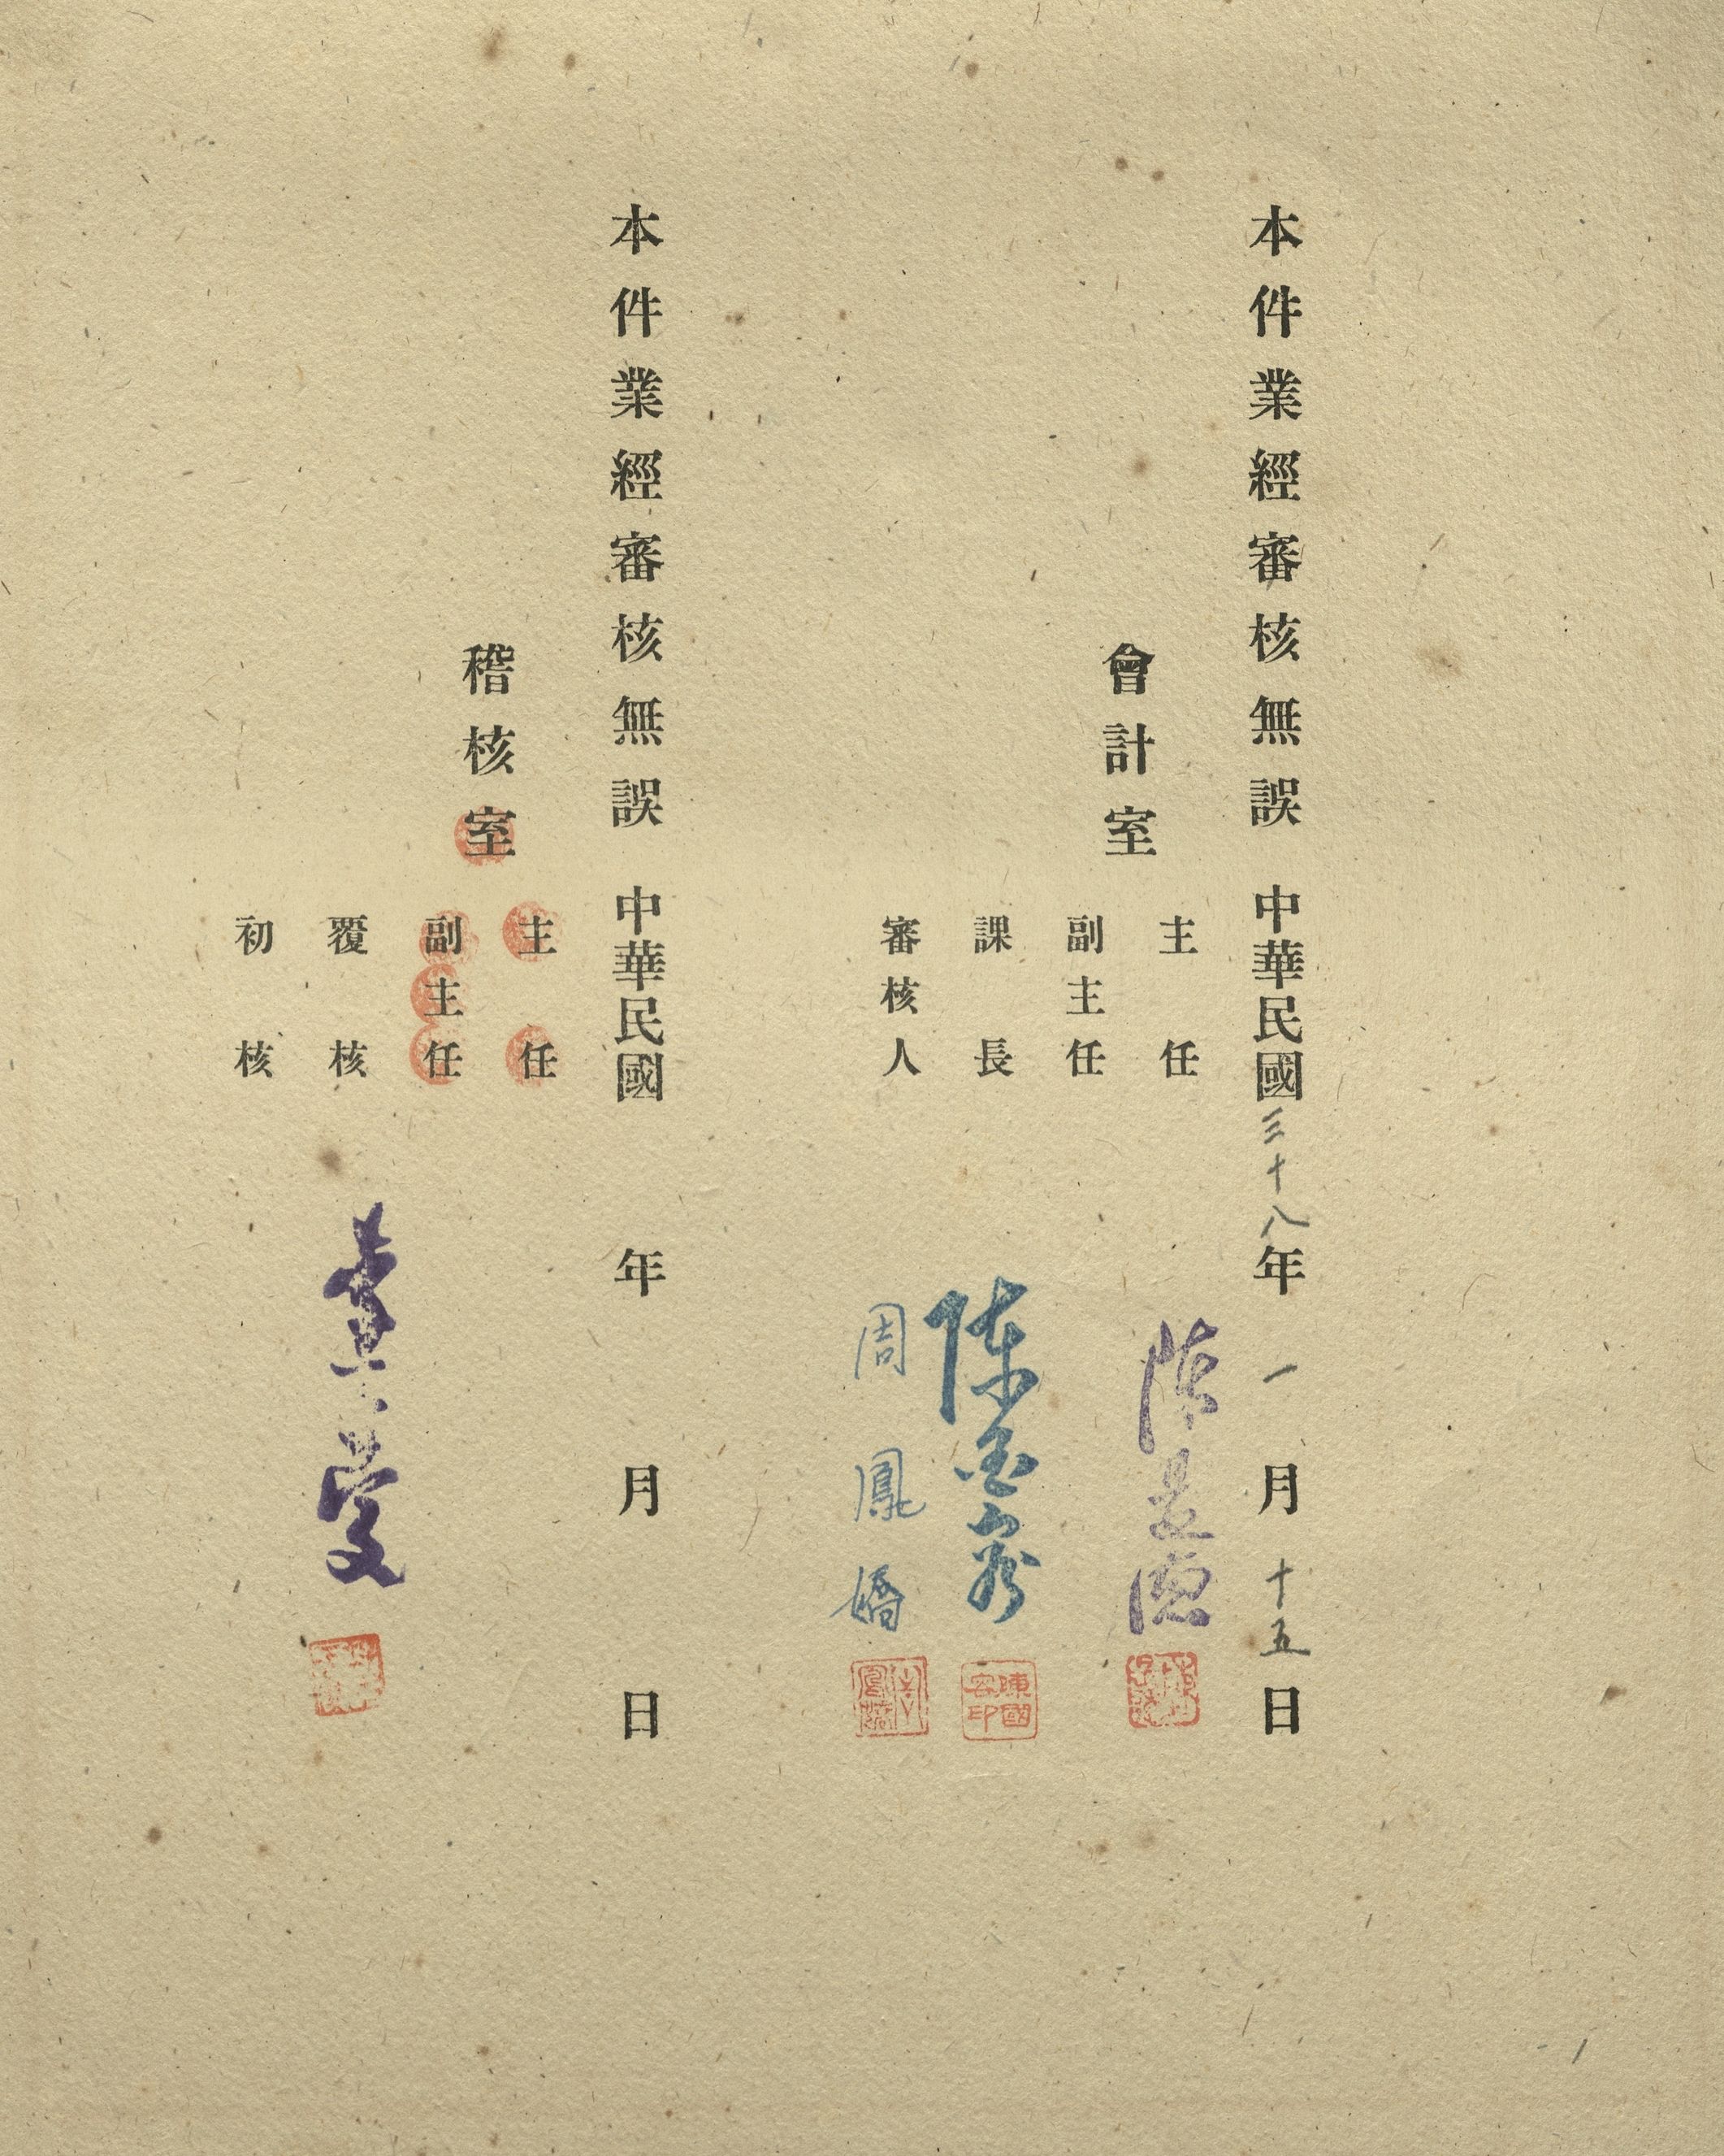 本件業經審核無誤 中華民國三十八年一月十五日
會計室
主任 陳
副主任
課長 陳
審核人 周鳳嬌
陳國容印
本件業經審核無誤 中華民國 年 月 日
稽核室
主任
副主任
覆核 黃
初核